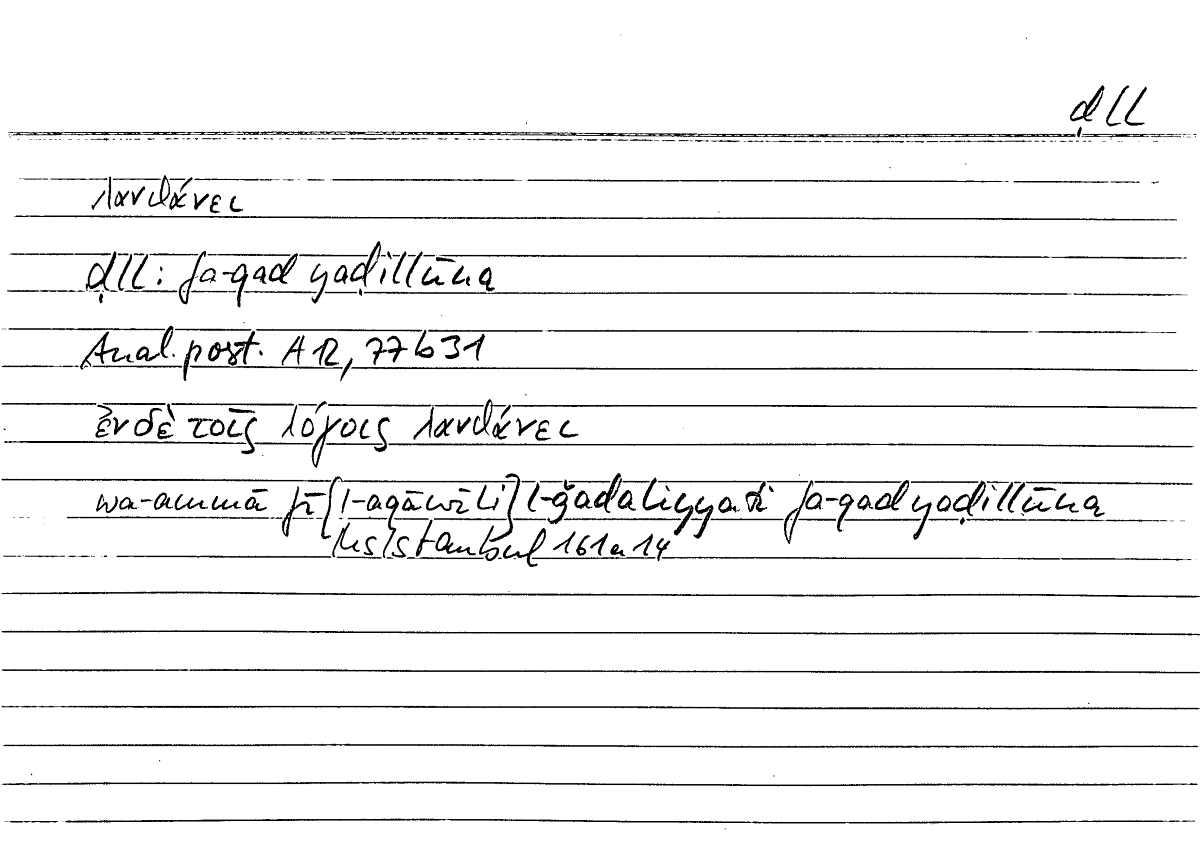 ḍll
λανθάνει
ḍll: fa-qad yaḍillūna
Anal. post. A 12, 77 b 31
ἐν δὲ τοῖς λόγοις λανθάνει
wa-ammā fī [l-aqāwīli] l-ǧadaliyyati fa-qad yaḍillūna
Hs Istanbul 161a14